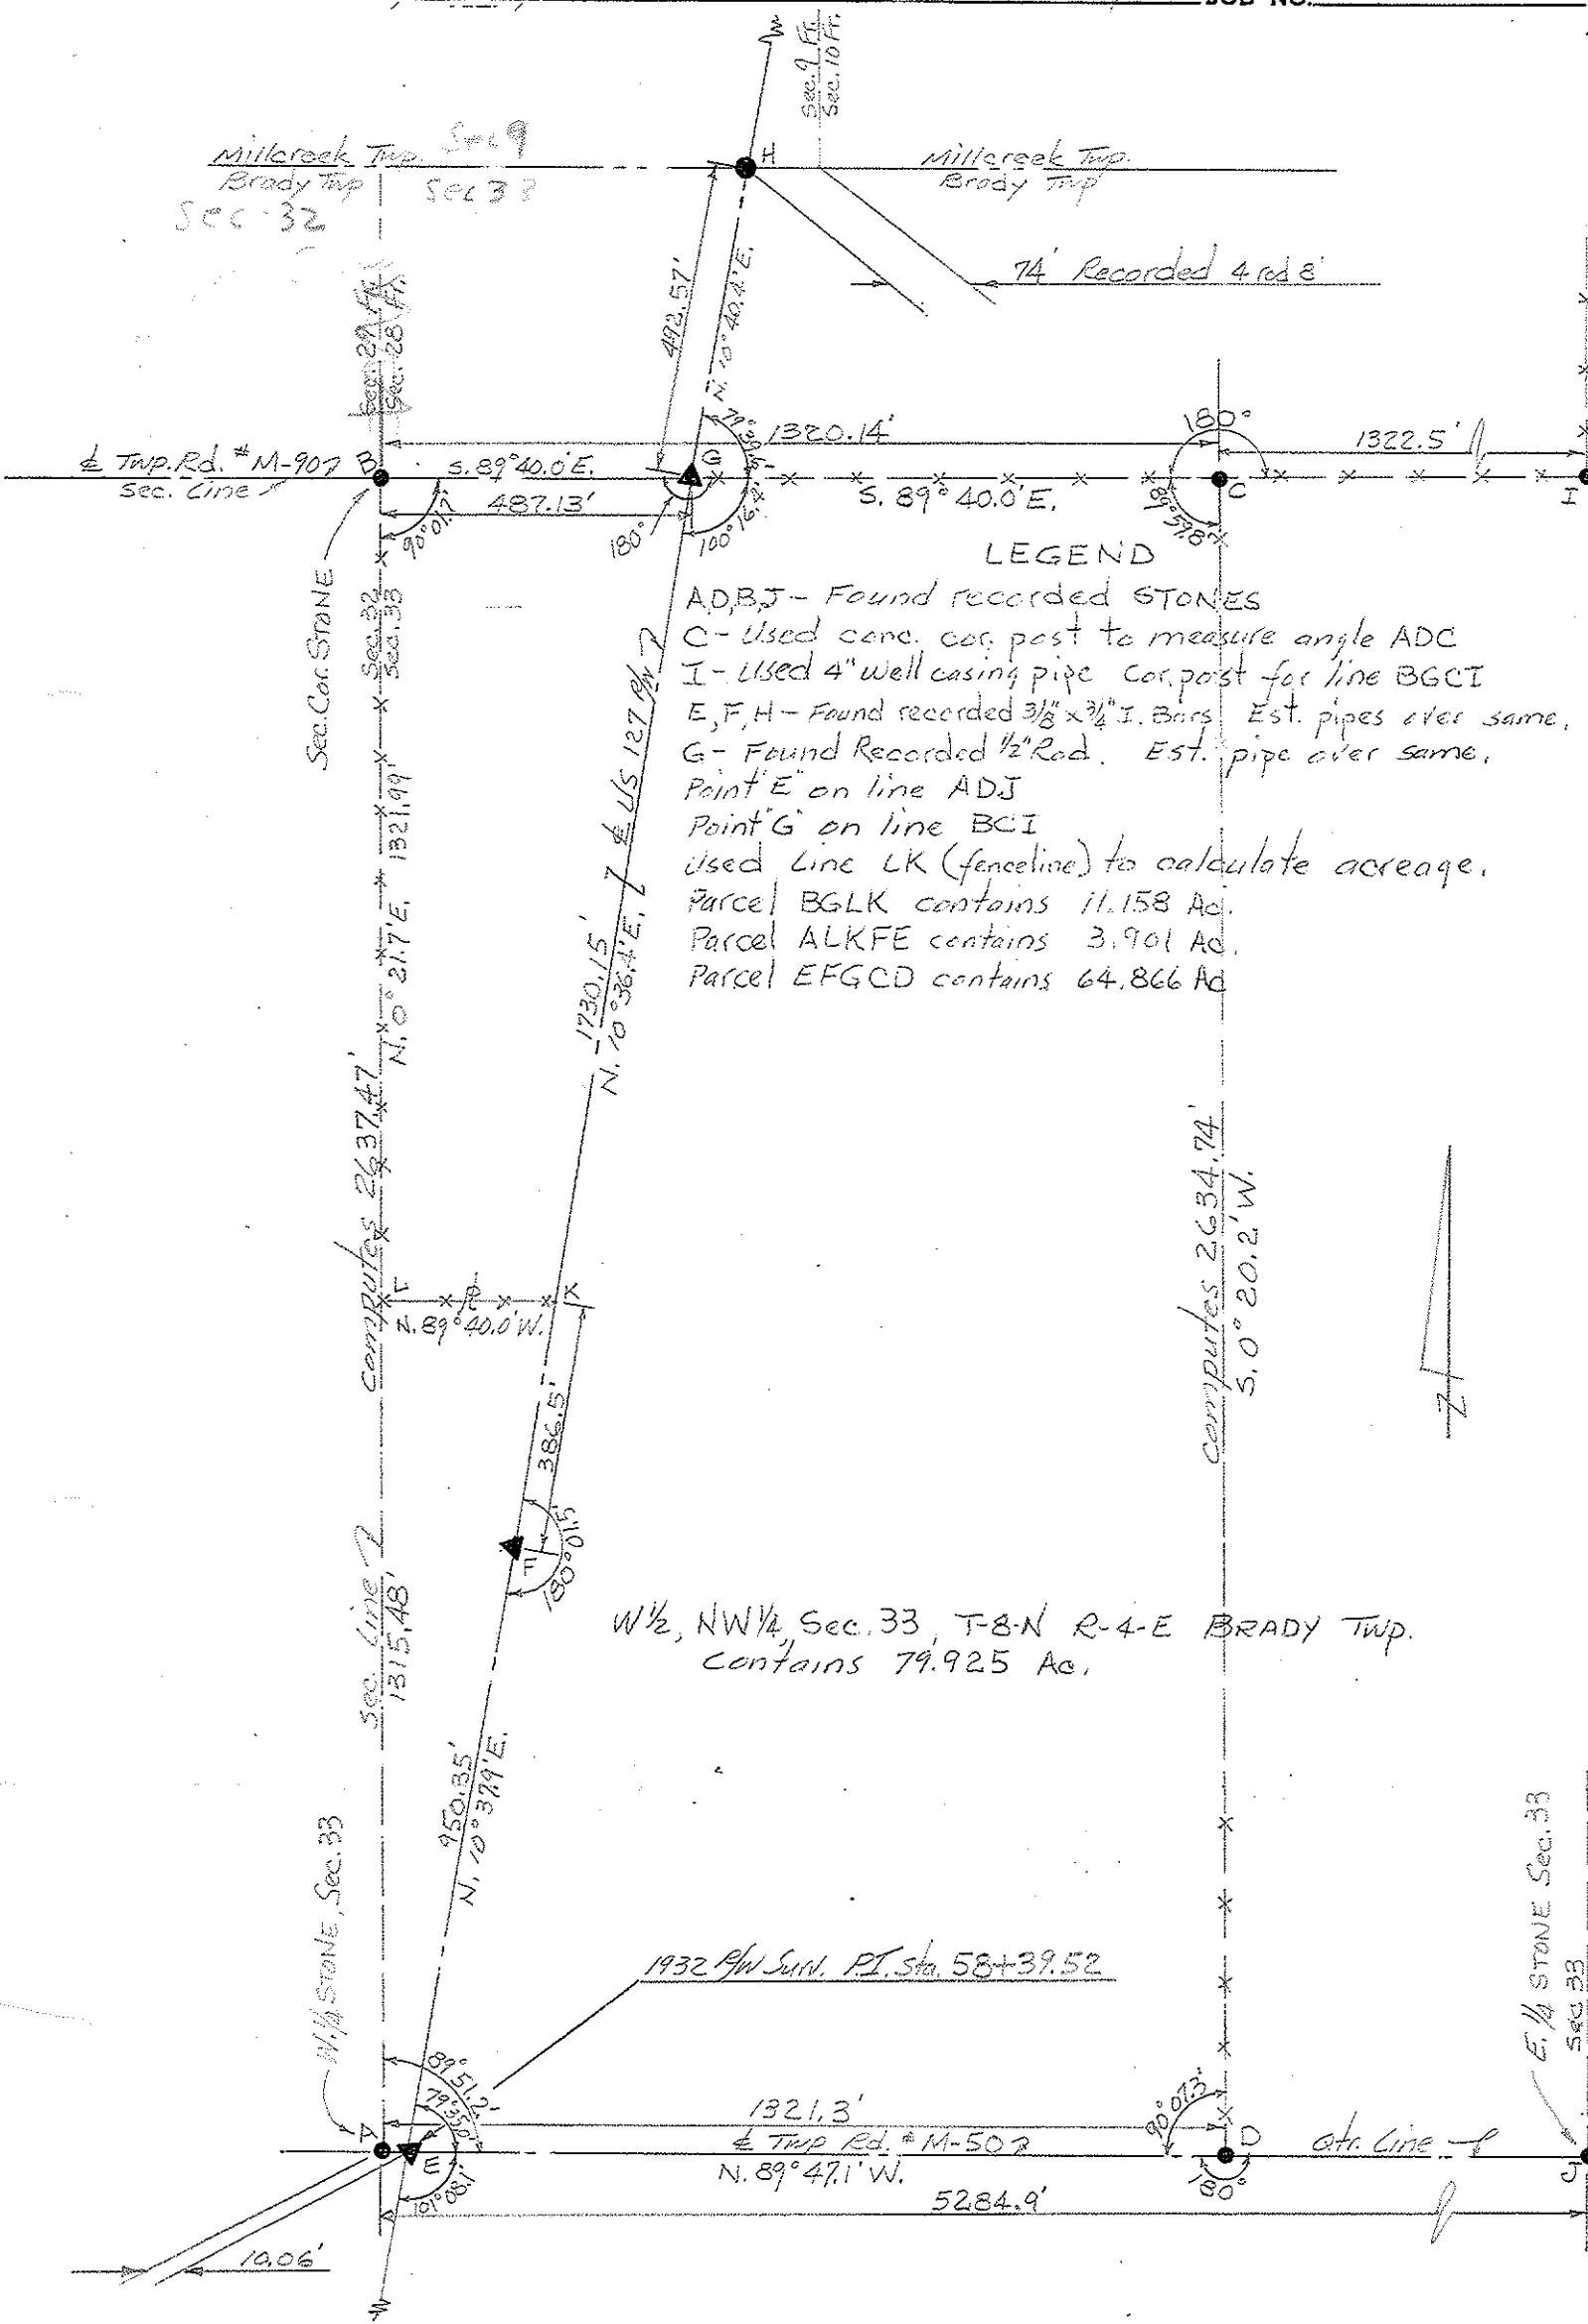 JOB NO.
Sec. 9 Fr.
Sec. 10 Fr.
Millcreek Twp. Sec 9
Brady Twp Sec 33
Sec 32
H
Millcreek Twp.
Brady Twp
74' Recorded 4 rod 8'
492.57'
N. 10°40.4'E.
Sec. 28 Fr.
1320.14'
180°
1322.5'
℄ Twp. Rd. #M-90
B
S. 89°40.0'E.
G
Sec. Line
487.13'
S. 89°40.0'E.
C
I
90°01.7'
180°
100°16.4'
89°57.8'
Sec. Cor. STONE
Sec. 32
Sec. 33
LEGEND
A,D,B,J - Found recorded STONES
C - Used conc. cor. post to measure angle ADC
I - Used 4" Well casing pipe Cor. post for line BGCI
E, F, H - Found recorded 3/8" x 3/4" I. Bars Est. pipes over same.
G - Found Recorded 1/2" Rod. Est. pipe over same.
Point "E" on line ADJ
Point "G" on line BCI
Used Line LK (fenceline) to calculate acreage.
Parcel BGLK contains 11.158 Ac.
Parcel ALKFE contains 3.901 Ac.
Parcel EFGCD contains 64.866 Ac
℄ US 127 R/W
1321.99'
N. 0°21.7'E.
1730.15'
N. 10°36.4'E.
computes 2637.47'
computes 2634.74'
S. 0°20.2'W.
L
K
N. 89°40.0'W.
386.5'
F
180°01.5'
Sec. Line
1315.48'
W 1/2, NW 1/4, Sec. 33, T-8-N R-4-E BRADY Twp.
Contains 79.925 Ac.
950.35'
N. 10°37.9'E.
W. 1/4 STONE, Sec. 33
1932 R/W Surv. P.I. Sta. 58+39.52
E. 1/4 STONE Sec. 33
Sec 33
89°51.2'
79°35.0'
A
E
101°08.1'
1321.3'
℄ Twp Rd. #M-50
N. 89°47.1'W.
90°07.3'
D
180°
Qtr. Line
J
5284.9'
10.06'
N